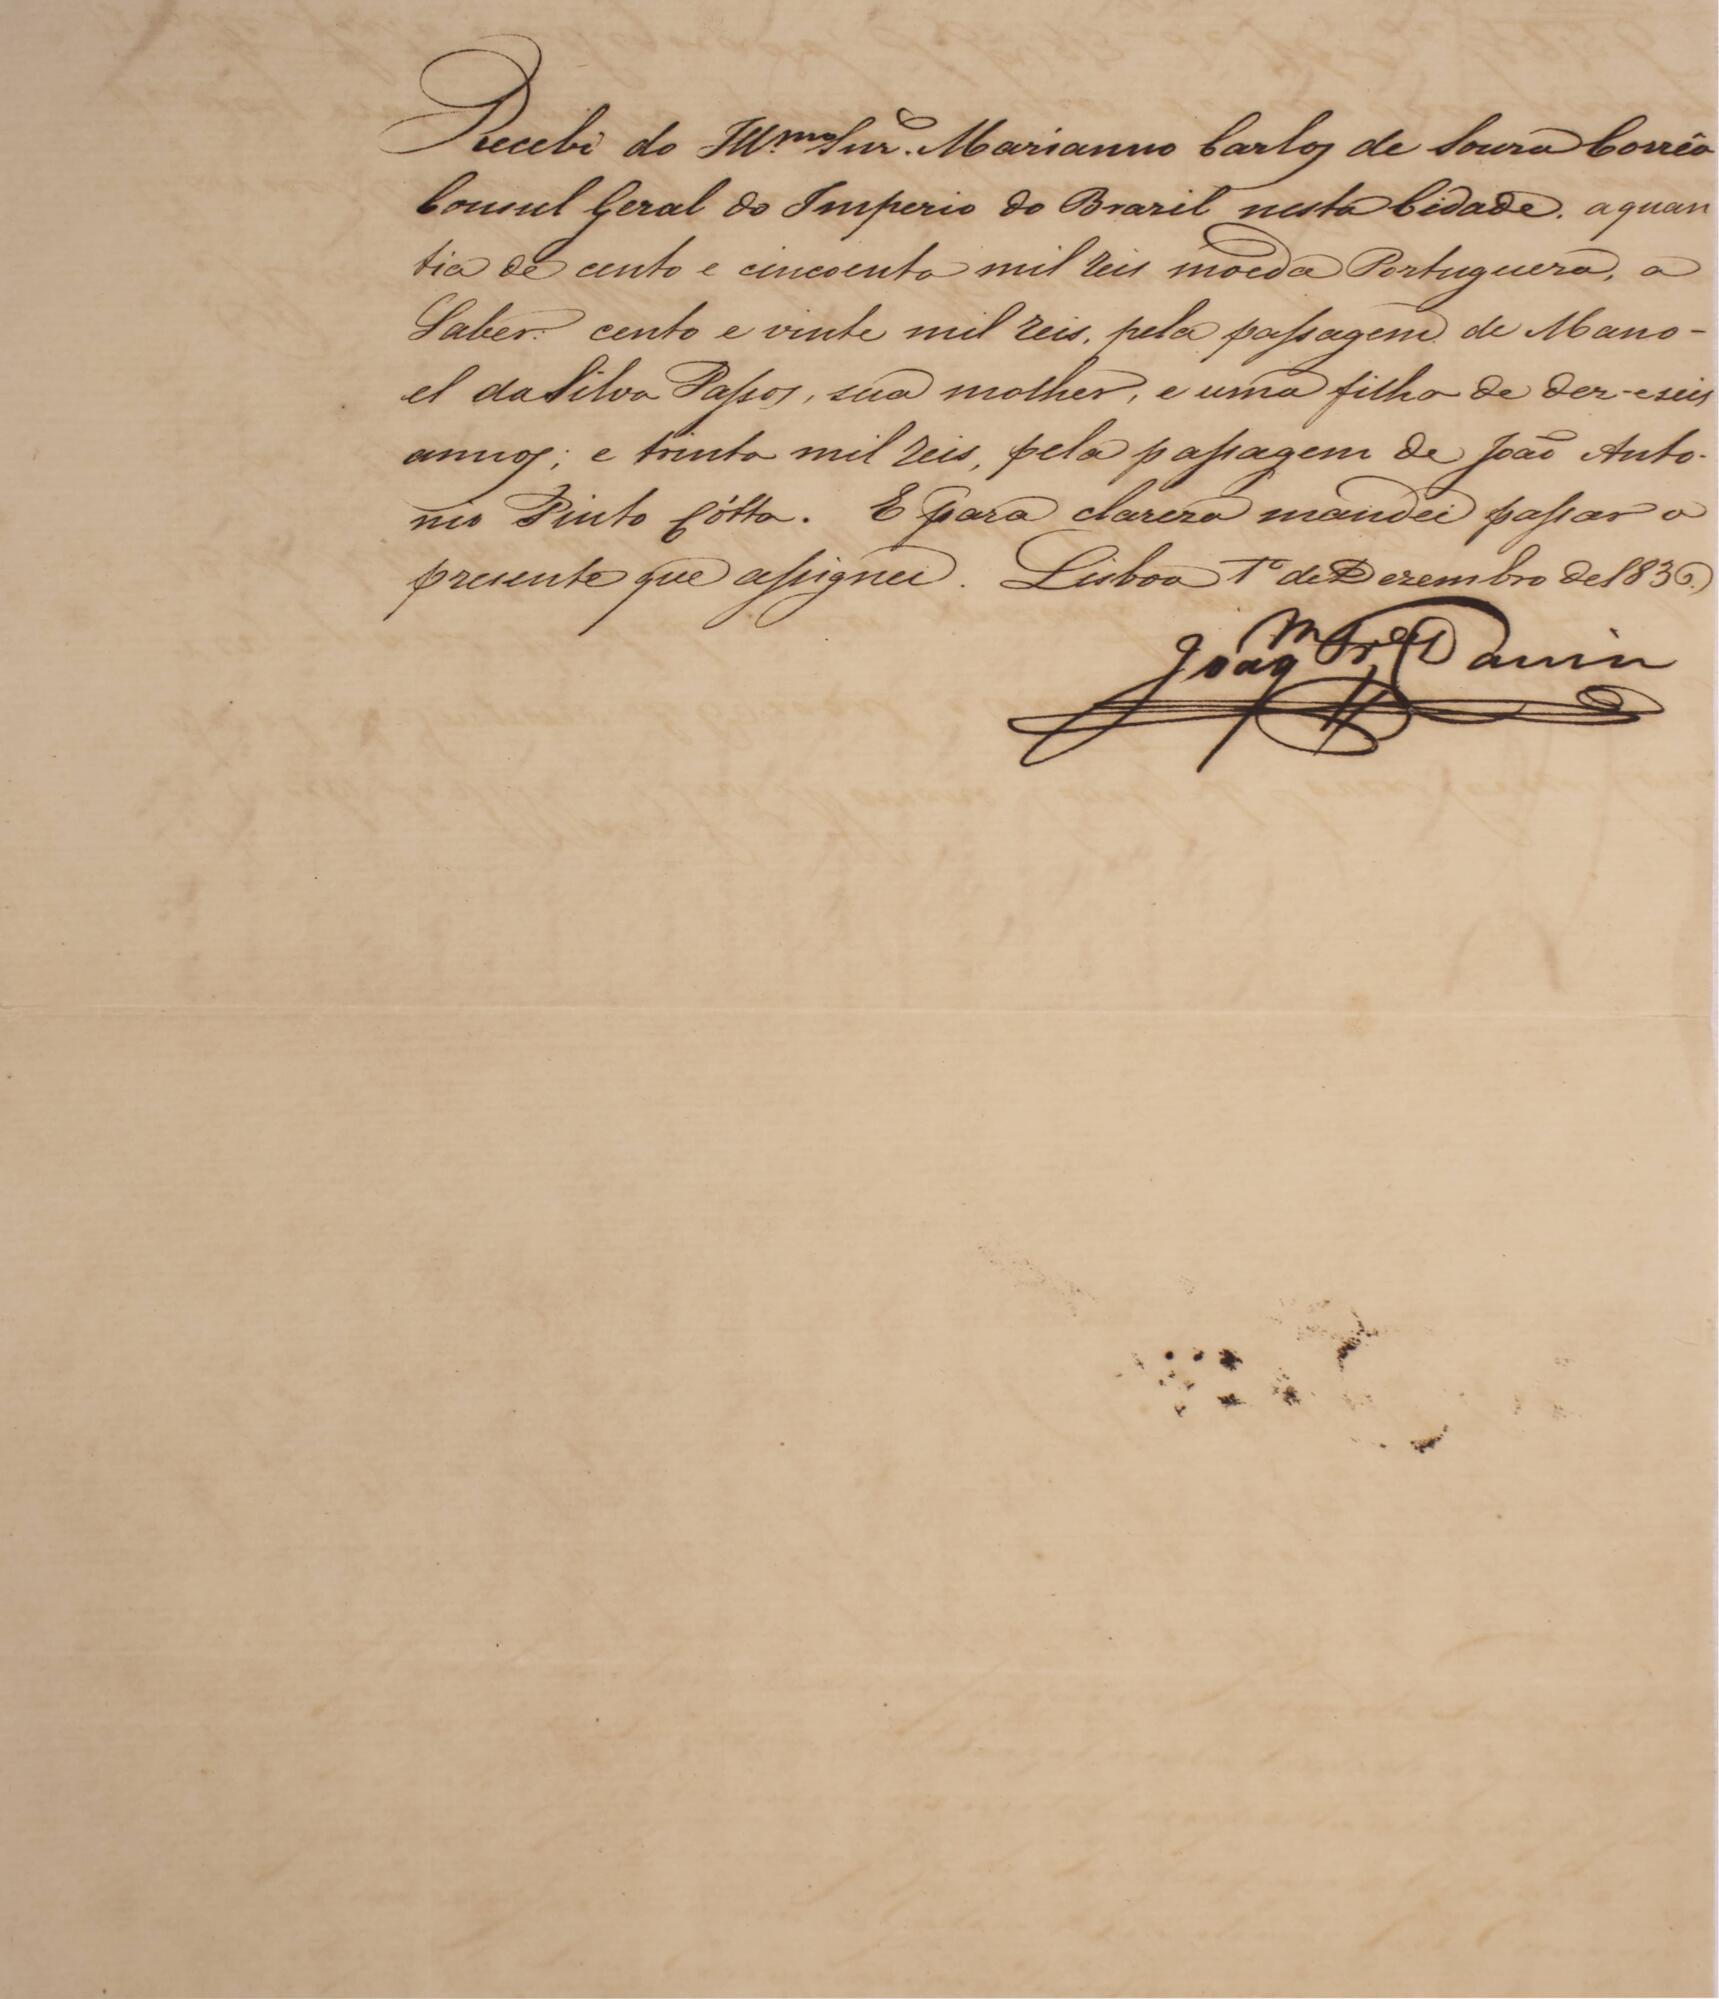 Recebi do Illmo Snr. Marianno Carlos de Souza Corrêa
Consul Geral do Imperio do Brazil nesta Cidade, a quan
tia de cento e cincoenta mil reis moeda Portugueza, a
Saber: cento e vinte mil reis, pela passagem de Mano-
el da Silva Passos, sua molher, e uma filha de dez-e seis
annos; e trinta mil reis, pela passagem de João Anto-
nio Pinto Cótta. E para clareza mandei passar o
presente que assignei. Lisboa 1º de Dezembro de 1836.
Joaqm